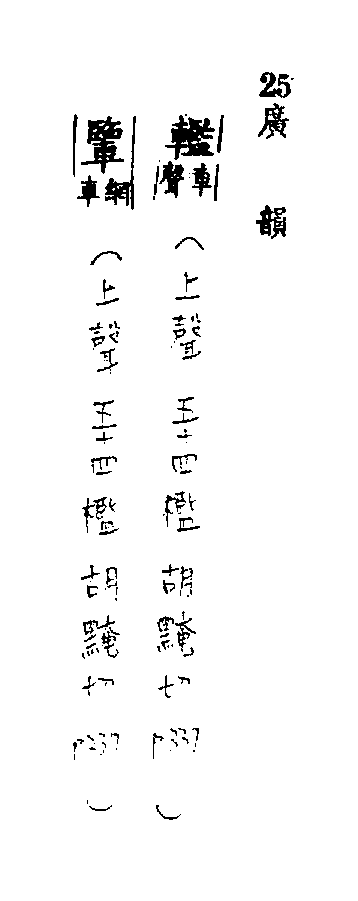 25廣韻
轞車聲（上聲 五十四檻 胡黤切 p337）
𨏊網車（上聲 五十四檻 胡黤切 p337）